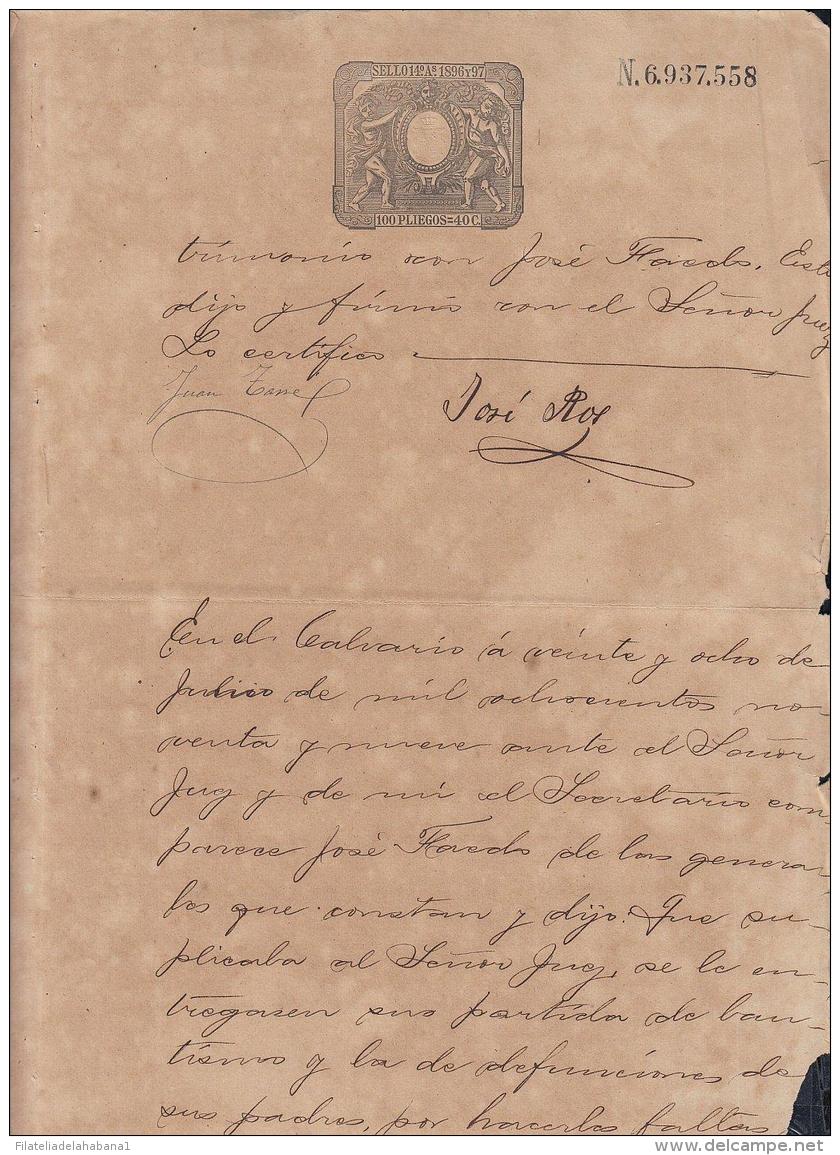 SELLO 14º Aˢ 1896 Y 97
N. 6.937.558
100 PLIEGOS=40 C.
trimonio con José Facdo. Esto
dijo y firmó con el Señor Juez
Lo certifico.
Juan
José Ros
En el Calvario á veinte y ocho de
Julio de mil ochocientos no-
venta y nueve ante el Señor
Juez y de mi el Secretario com-
parece José Facdo de las genera-
les que constan y dijo: Que su-
plicaba al Señor Juez, se le en-
tregasen su partida de bau-
tismo y la de defunciones de
sus padres, por hacerles faltas
Filateliadelahabana1
delcampe.net